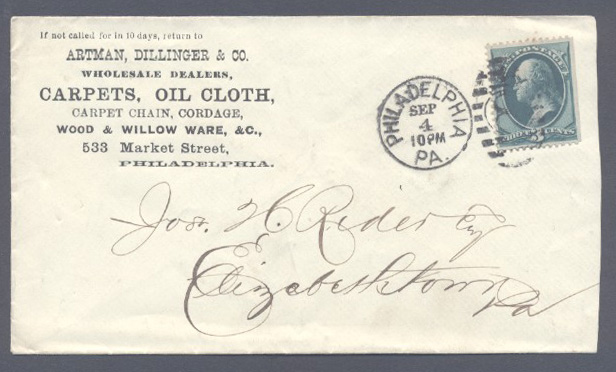 If not called for in 10 days, return to
ARTMAN, DILLINGER & CO.
WHOLESALE DEALERS,
CARPETS, OIL CLOTH,
CARPET CHAIN, CORDAGE,
WOOD & WILLOW WARE, &C.,
533 Market Street,
PHILADELPHIA.
PHILADELPHIA
SEP
4
10PM
PA.
POSTAGE
THREE 3 CENTS
Jos. H. Rider Esq
Elizabethtown
Pa